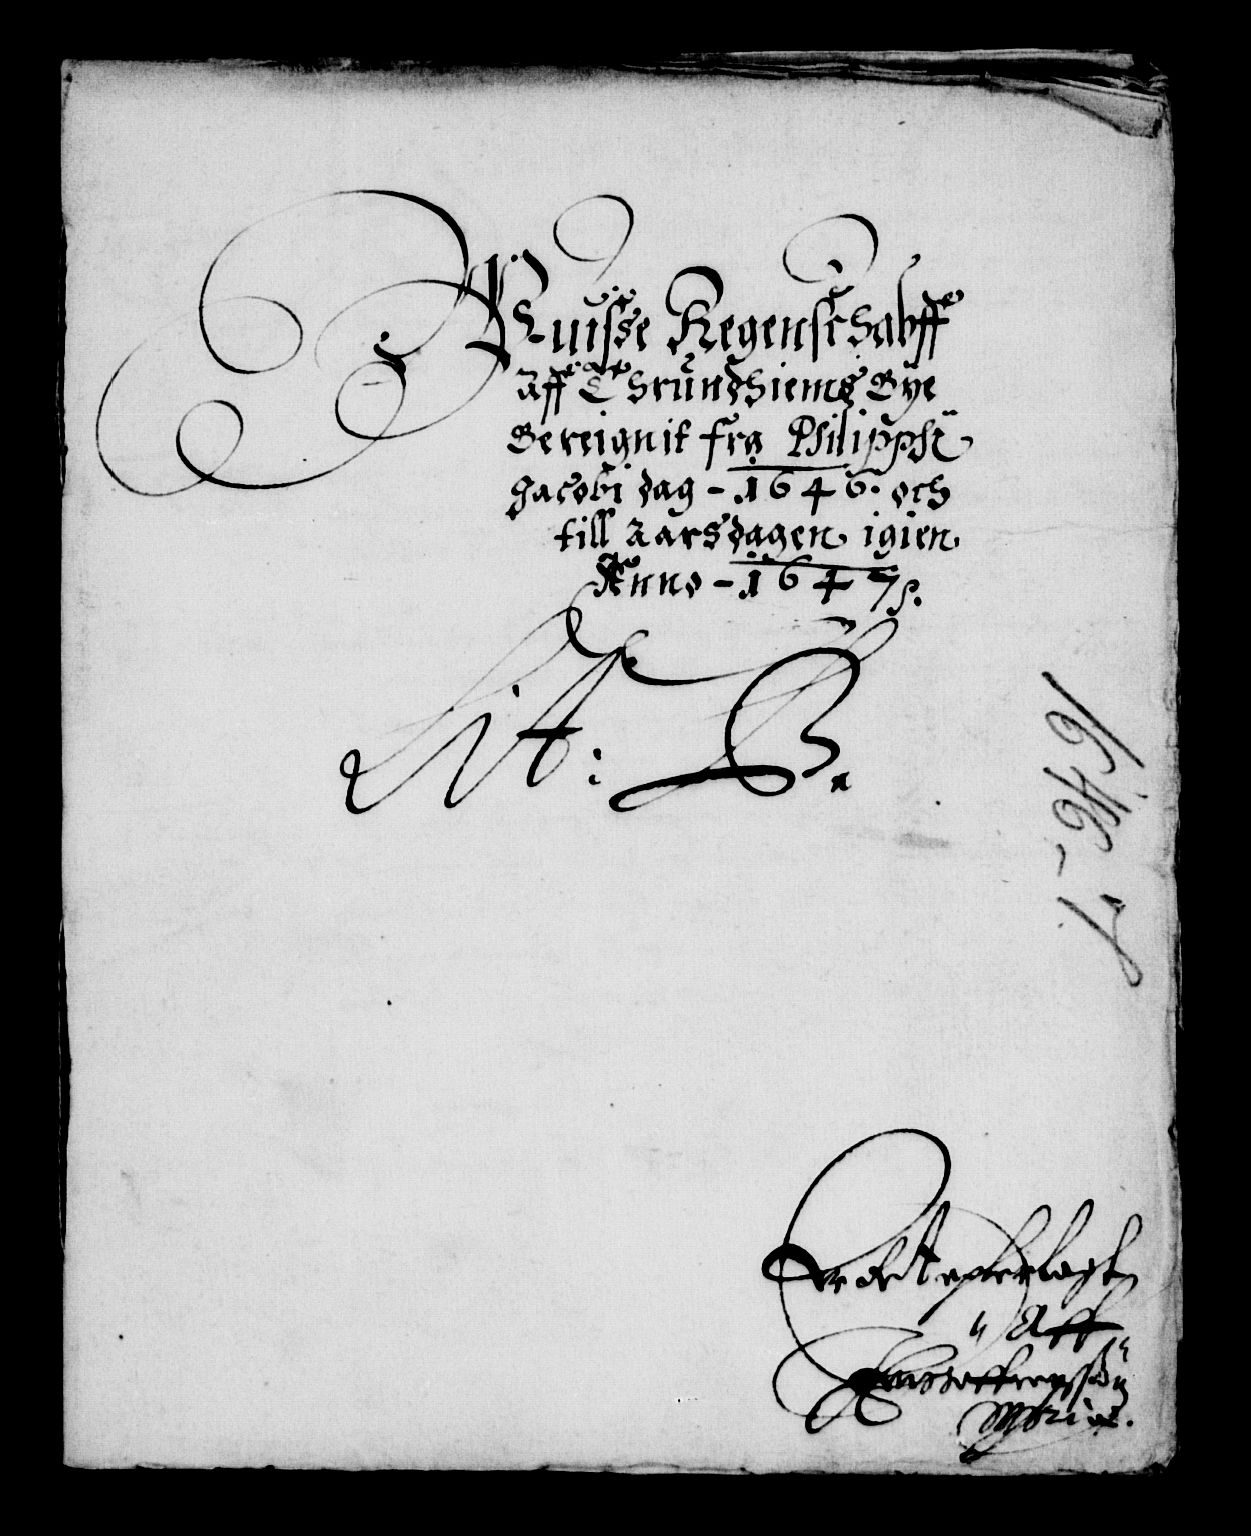 Acuisse Regenschabff
Aff Thrundhiems Bÿe
Bereignit fra Philippi
Jacobi dag - 1646. och
till Aarsdagen igien
Anno - 1647.
Lit: B.
1646-7
Aff